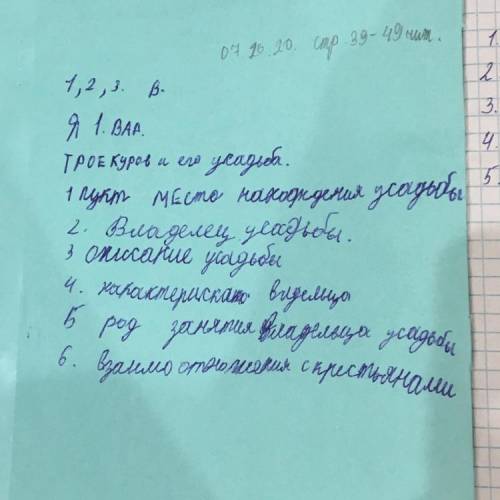 07.10.20. стр 39-49 чит.
1, 2, 3. В.
Я 1. ВАР.
ТРОЕКУРОВ и его усадьба.
1 пункт МЕСТО нахождения усадьбы
2. Владелец усадьбы.
3 описание усадьбы
4. характерискато
5 род занятия владельца усадьбы
6. взаимоотношения с крестьянами
1.
2
3.
4.
5.